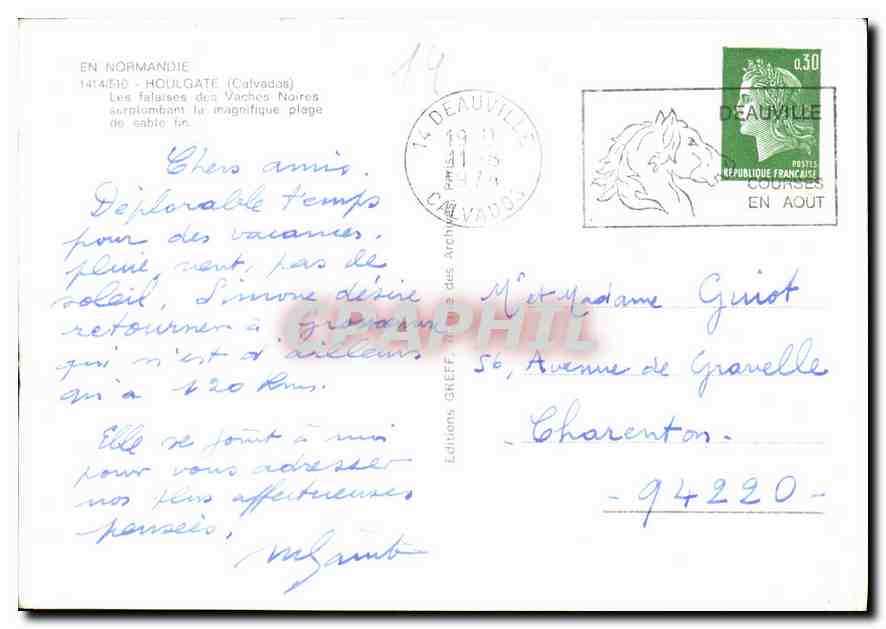 EN NORMANDIE
1414/510 - HOULGATE (Calvados)
Les falaises des Vaches Noires
surplombant la magnifique plage
de sable fin.
14
14 DEAUVILLE
19 H
11 - 6
1974
CALVADOS
0,30
DEAUVILLE
POSTES
RÉPUBLIQUE FRANÇAISE
COURSES
EN AOUT
Chers amis.
Déplorable temps
pour des vacances.
pluie, vent, pas de
soleil. Simone désire
retourner à
qui n'est d'ailleurs
qu'à 120 kms.
Elle se joint à moi
pour vous adresser
nos plus affectueuses
pensées.
Editions GREFF, des Archives Paris
CPAPHIL
Mr et Madame Guiot
56, Avenue de Gravelle
- Charenton -
- 94220 -